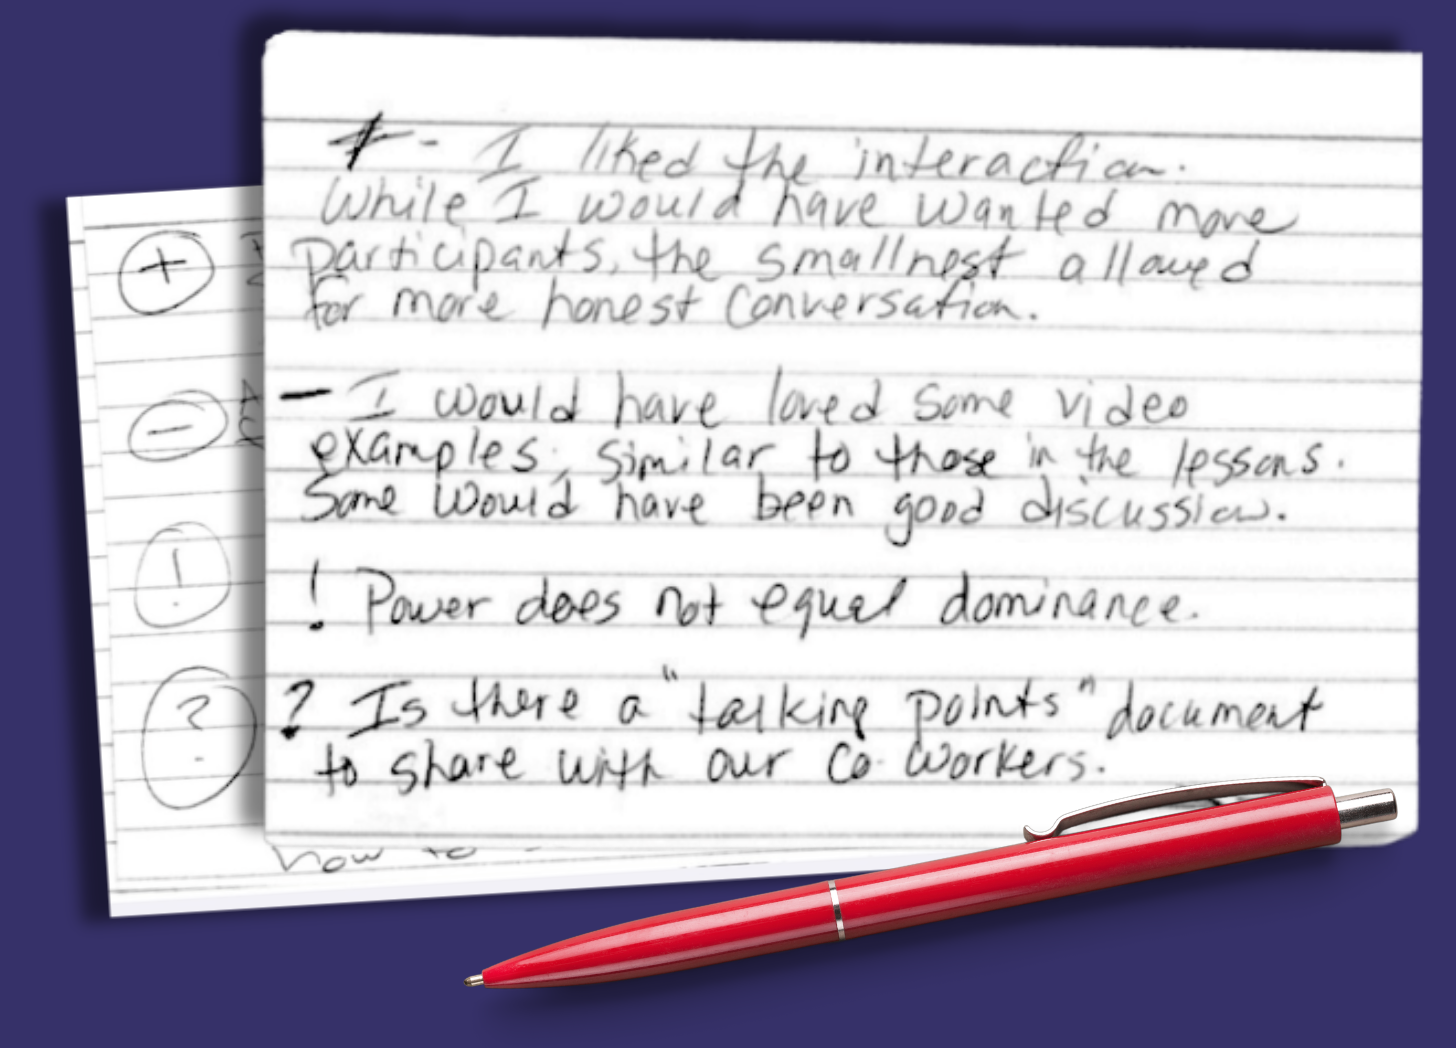 + - I liked the interaction.
While I would have wanted more
participants, the smallnest allowed
for more honest conversation.
— I would have loved some video
examples, similar to those in the lessons.
Some would have been good discussion.
! Power does not equal dominance.
? Is there a "talking points" document
to share with our co-workers.
+
−
!
?
how to